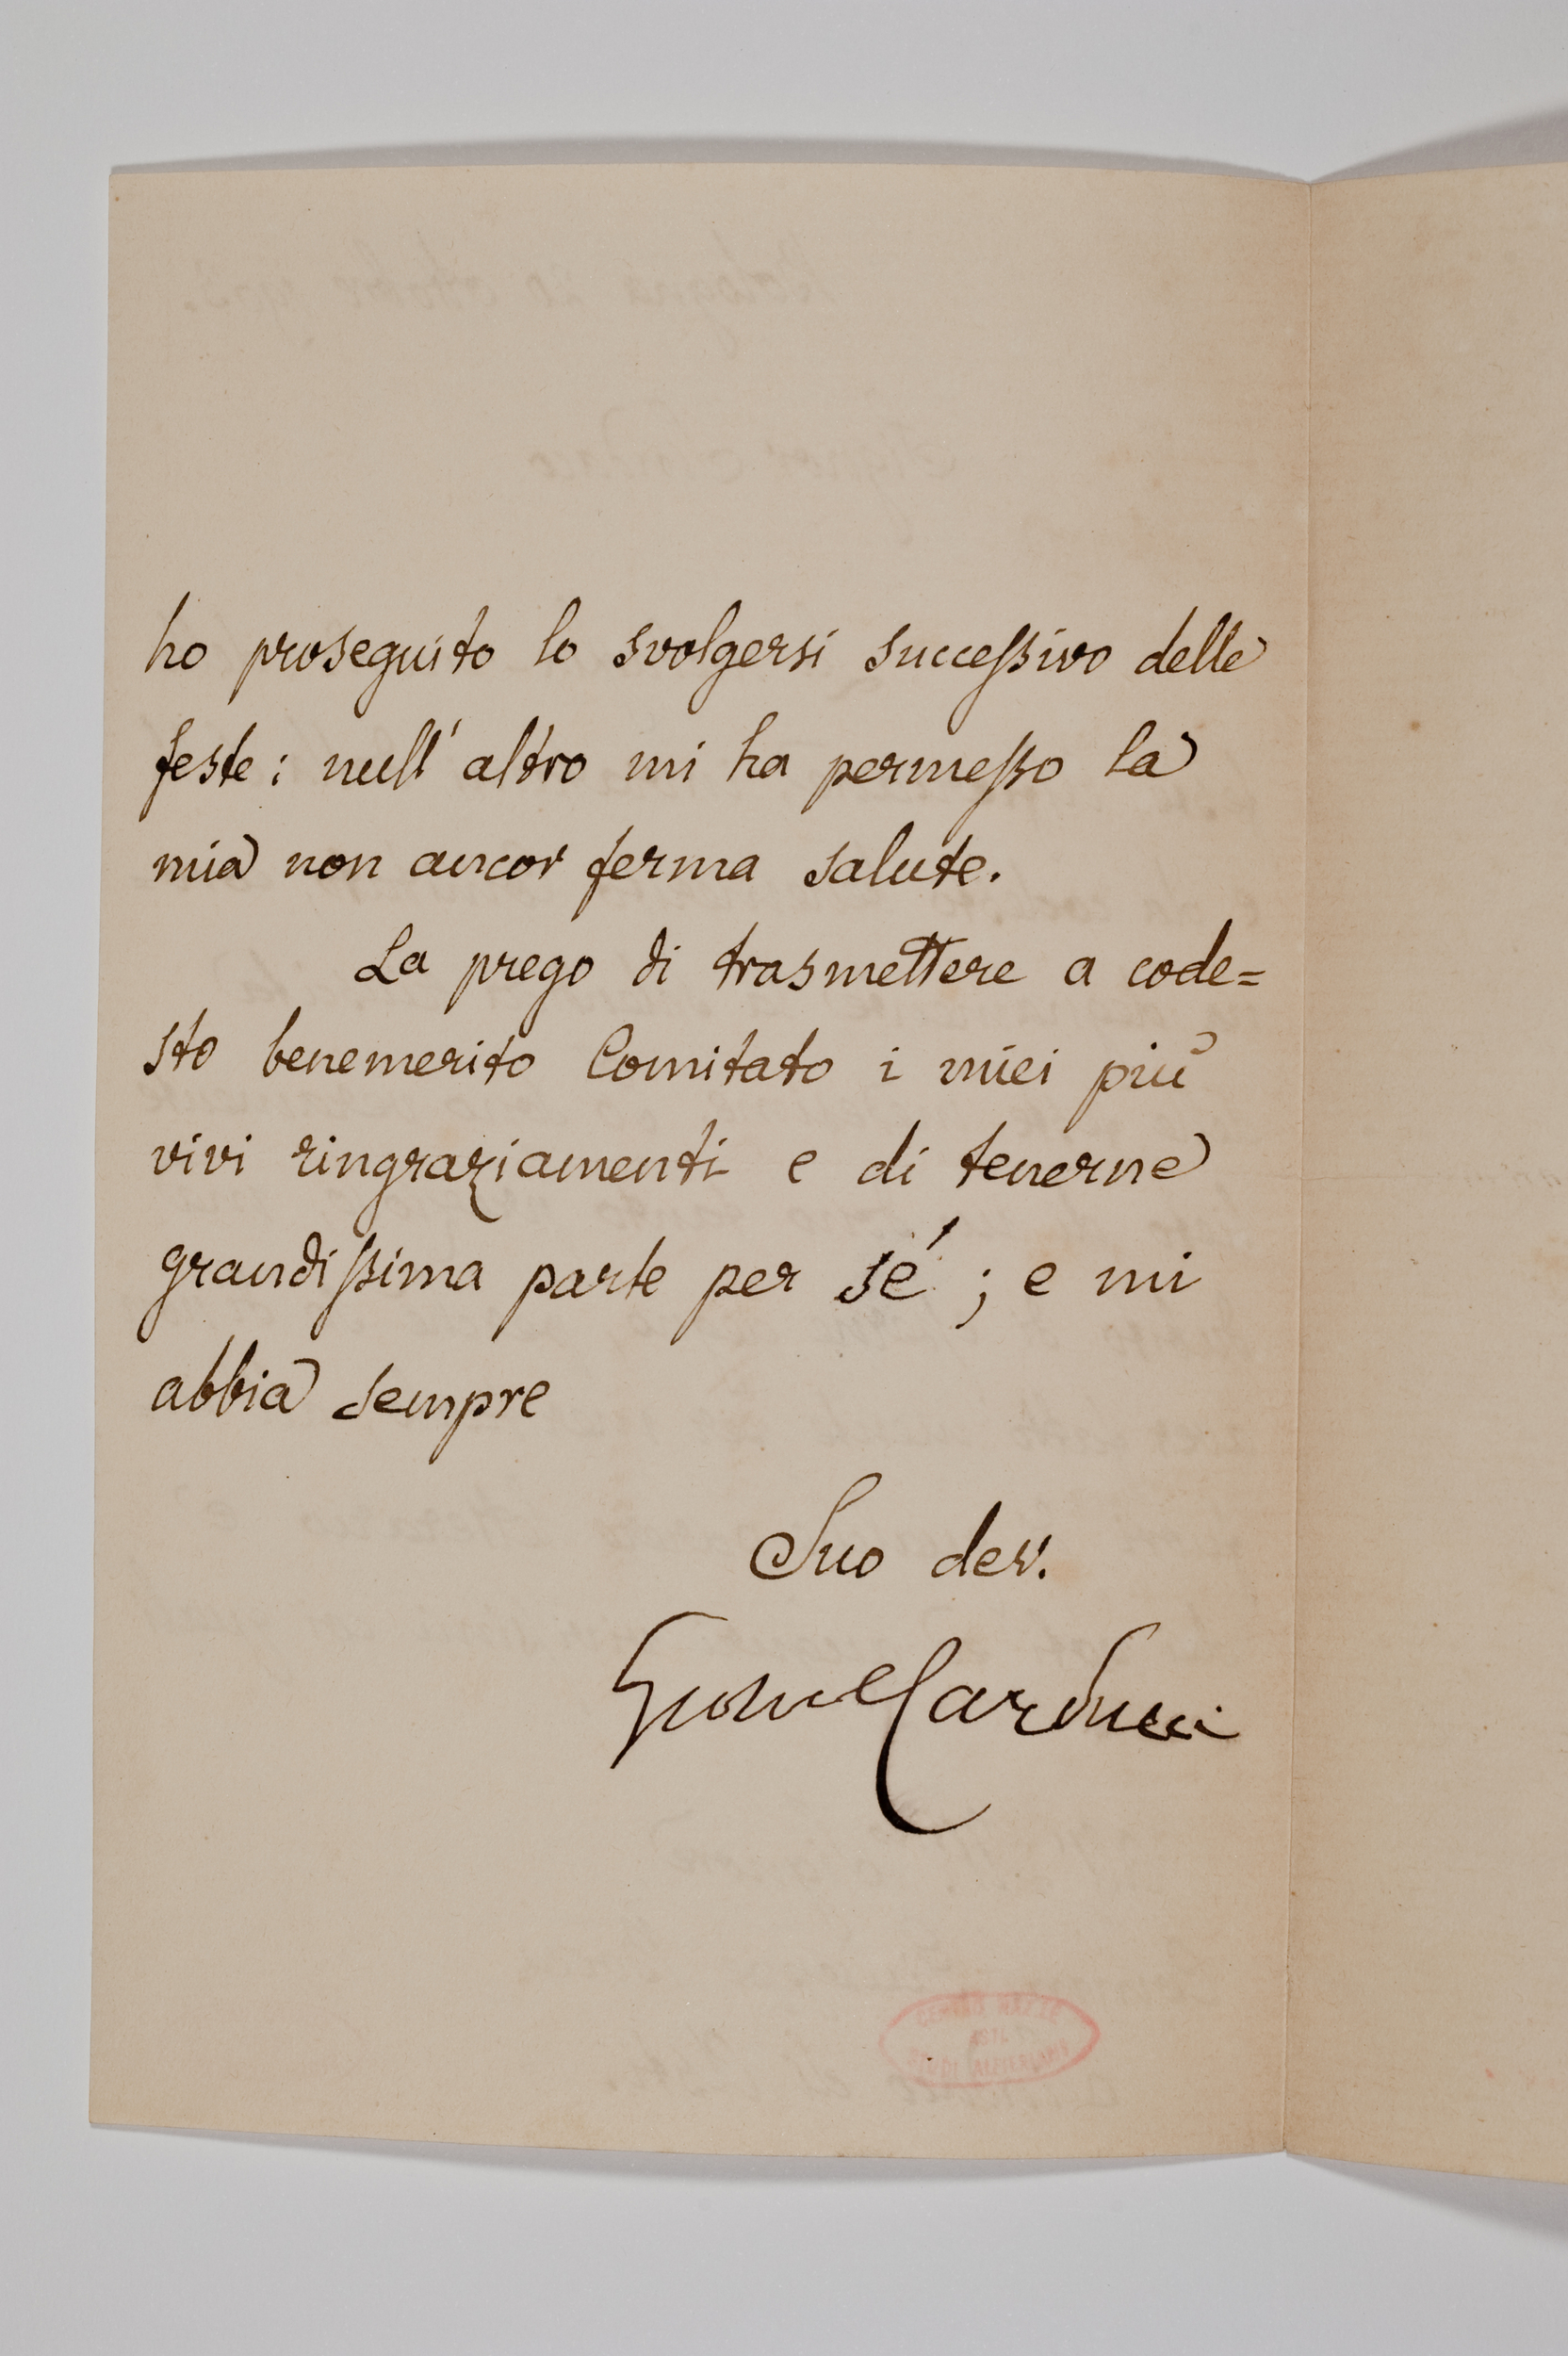 ho proseguito lo svolgersi successivo delle
feste: null'altro mi ha permesso la
mia non ancor ferma salute.
La prego di trasmettere a code=
sto benemerito Comitato i miei più
vivi ringraziamenti e di tenerne
grandissima parte per sé; e mi
abbia sempre
Suo dev.
Giosue Carducci
CENTRO NAZ.LE
ASTI
STUDI ALFIERIANI